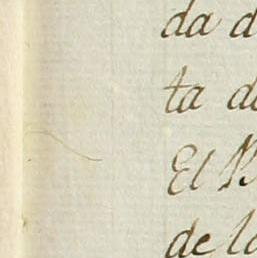 da d
ta d
El
de la